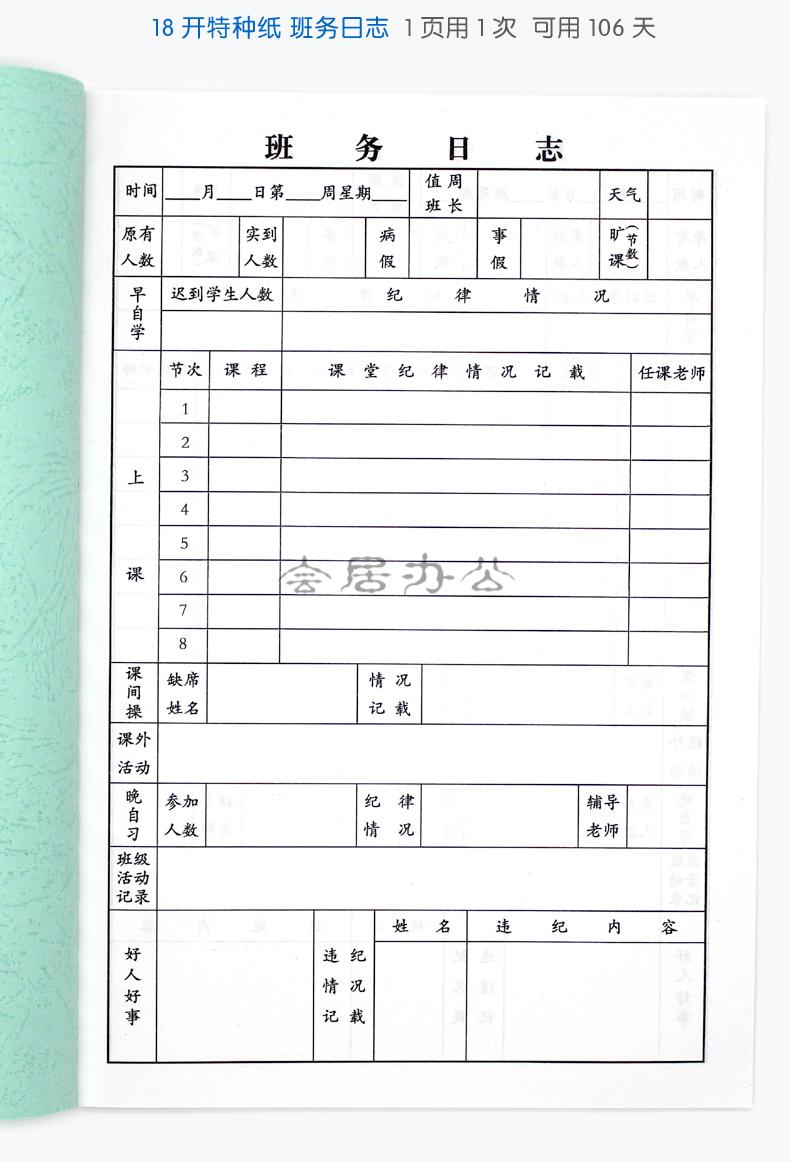 18 开特种纸 班务日志 1 页用 1 次 可用 106 天
班 务 日 志
时间 ____月____日第____周星期____ 值周班长 天气
原有人数 实到人数 病假 事假 旷课(节数)
早自学 迟到学生人数 纪 律 情 况
上课 节次 课程 课 堂 纪 律 情 况 记 载 任课老师
1
2
3
4
5
6
7
8
会居办公
课间操 缺席姓名 情况记载
课外活动
晚自习 参加人数 纪律情况 辅导老师
班级活动记录
好人好事 违纪情况记载 姓 名 违 纪 内 容